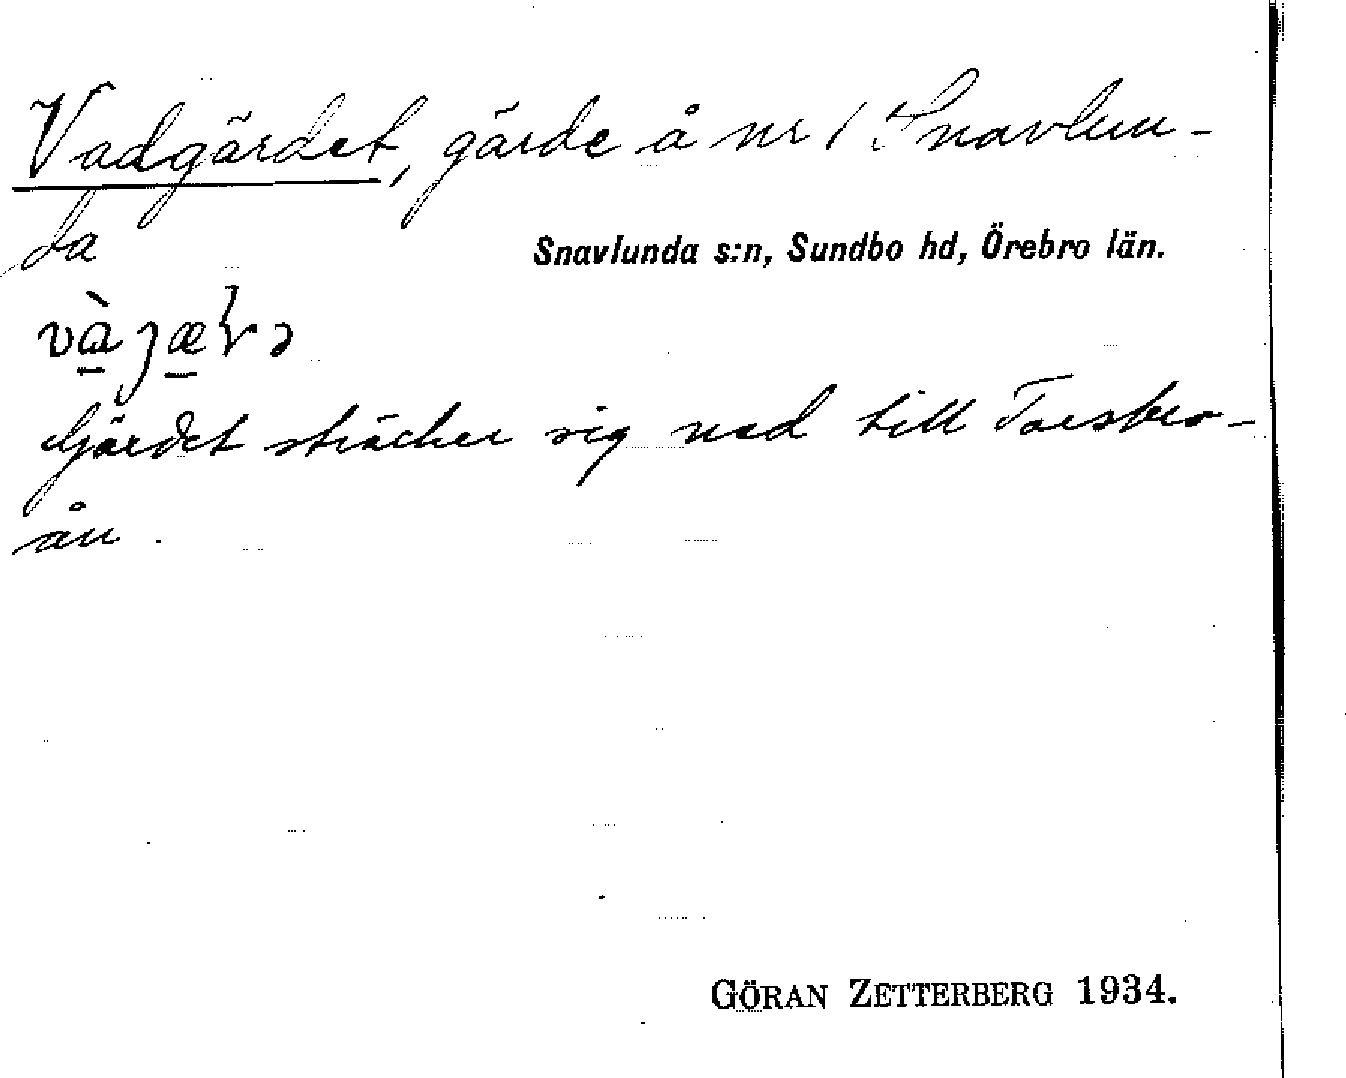 Vadgärdet, gärde å nr 1 Snavlun-
da
Snavlunda s:n, Sundbo hd, Örebro län.
Gärdet sträcker sig ned till Torsbro-
ån.
GÖRAN ZETTERBERG 1934.